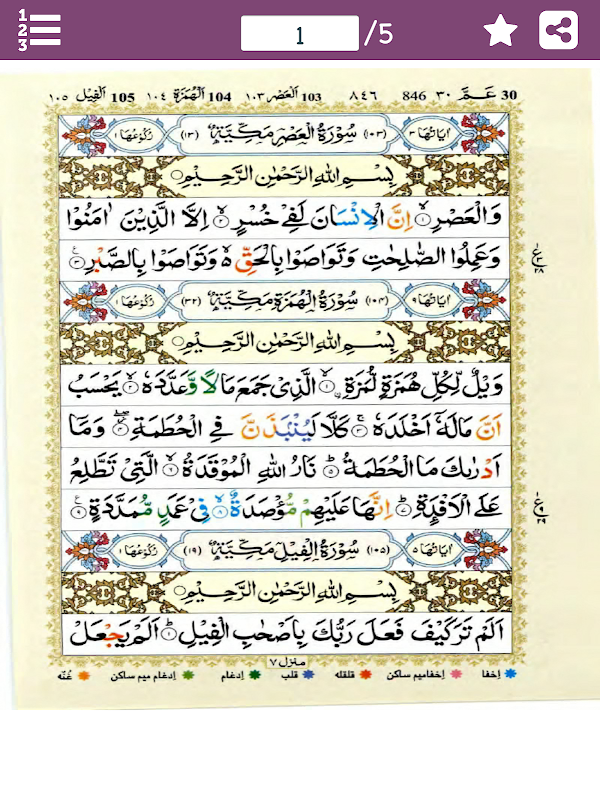 1
2
3
1 /5
30 عَـمَّ ٣٠ 846 ٨٤٦ 103 اَلْعَصْر ١٠٣ 104 اَلْهُمَزَة ١٠٤ 105 اَلْفِيْل ١٠٥
اٰيَاتُهَا ٣ (١٠٣) سُوْرَةُ الْعَصْرِ مَكِّيَّةٌ (١٣) رُكُوْعُهَا ١
بِسْمِ اللهِ الرَّحْمٰنِ الرَّحِيْمِ
وَالْعَصْرِ ۙ‏﴿۱﴾ اِنَّ الْاِنْسَانَ لَفِىْ خُسْرٍ ۙ‏﴿۲﴾ اِلَّا الَّذِيْنَ اٰمَنُوْا
وَعَمِلُوا الصّٰلِحٰتِ وَتَوَاصَوْا بِالْحَقِّ ۙ۬ وَتَوَاصَوْا بِالصَّبْرِ ﴿۳﴾
ع
٢٨
اٰيَاتُهَا ٩ (١٠٤) سُوْرَةُ الْهُمَزَةِ مَكِّيَّةٌ (٣٢) رُكُوْعُهَا ١
بِسْمِ اللهِ الرَّحْمٰنِ الرَّحِيْمِ
وَيْلٌ لِّكُلِّ هُمَزَةٍ لُّمَزَةِ ۙ‏﴿۱﴾ اۨلَّذِىْ جَمَعَ مَالًا وَّعَدَّدَهٗ ۙ‏﴿۲﴾ يَحْسَبُ
اَنَّ مَالَهٗۤ اَخْلَدَهٗ ۚ‏﴿۳﴾ كَلَّا لَيُنْۢبَذَنَّ فِى الْحُطَمَةِ ۖ‏﴿۴﴾ وَمَاۤ
اَدْرٰٮكَ مَا الْحُطَمَةُ ؕ‏﴿۵﴾ نَارُ اللهِ الْمُوْقَدَةُ ۙ‏﴿۶﴾ الَّتِىْ تَطَّلِعُ
عَلَى الْاَفْـِٕدَةِ ؕ‏﴿۷﴾ اِنَّهَا عَلَيْهِمْ مُّؤْصَدَةٌ ۙ‏﴿۸﴾ فِىْ عَمَدٍ مُّمَدَّدَةٍ ﴿۹﴾
ع
٢٩
اٰيَاتُهَا ٥ (١٠٥) سُوْرَةُ الْفِيْلِ مَكِّيَّةٌ (١٩) رُكُوْعُهَا ١
بِسْمِ اللهِ الرَّحْمٰنِ الرَّحِيْمِ
اَلَمْ تَرَ كَيْفَ فَعَلَ رَبُّكَ بِاَصْحٰبِ الْفِيْلِ ؕ‏﴿۱﴾ اَلَمْ يَجْعَلْ
منزل ٧
اِخفا اِخفامیم ساکن قلقله قلب ادغام ادغام میم ساکن غُنّه